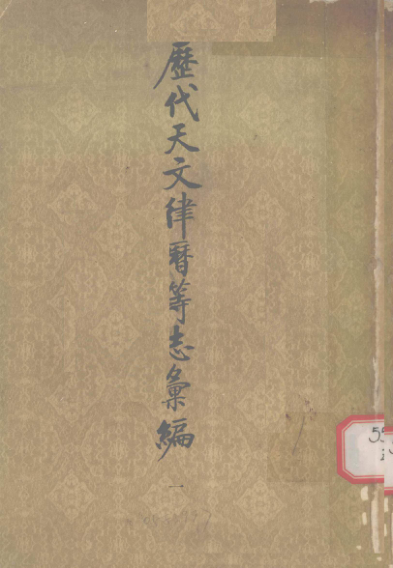 歷代天文律曆等志彙編
一